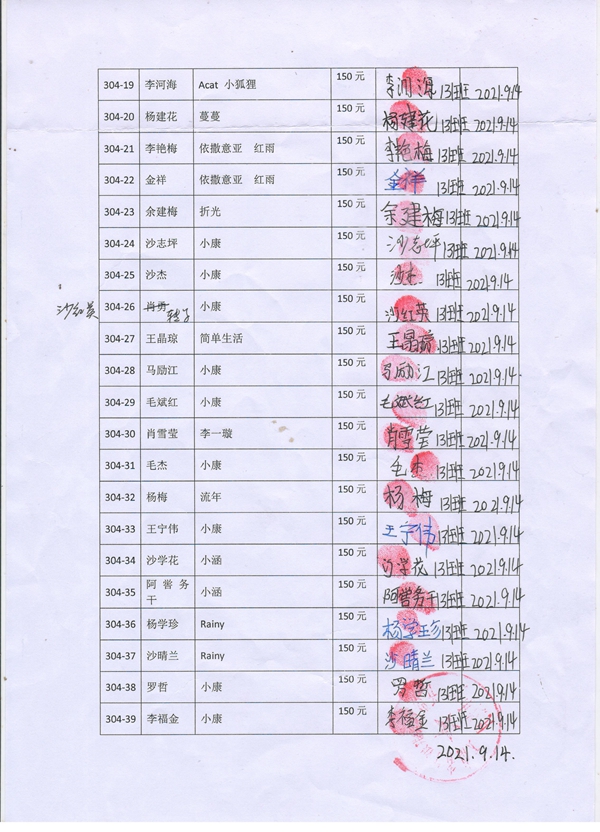 304-19 李河海 Acat 小狐狸 150 元 李河海 13班 2021.9.14
304-20 杨建花 蔓蔓 150 元 杨建花 13班 2021.9.14
304-21 李艳梅 依撒意亚 红雨 150 元 李艳梅 13班 2021.9.14
304-22 金祥 依撒意亚 红雨 150 元 金祥 13班 2021.9.14
304-23 余建梅 折光 150 元 余建梅 13班 2021.9.14
304-24 沙志坪 小康 150 元 沙志坪 13班 2021.9.14
304-25 沙杰 小康 150 元 沙杰 13班 2021.9.14
沙红英 304-26 肖勇 小康 150 元 沙红英 13班 2021.9.14
304-27 王晶琼 简单生活 150 元 王晶琼 13班 2021.9.14
304-28 马励江 小康 150 元 马励江 13班 2021.9.14
304-29 毛斌红 小康 150 元 毛斌红 13班 2021.9.14
304-30 肖雪莹 李一璇 150 元 肖雪莹 13班 2021.9.14
304-31 毛杰 小康 150 元 毛杰 13班 2021.9.14
304-32 杨梅 流年 150 元 杨梅 13班 2021.9.14
304-33 王宁伟 小康 150 元 王宁伟 13班 2021.9.14
304-34 沙学花 小涵 150 元 沙学花 13班 2021.9.14
304-35 阿喾务 小涵 150 元 阿喾务干 13班 2021.9.14
干
304-36 杨学珍 Rainy 150 元 杨学珍 13班 2021.9.14
304-37 沙晴兰 Rainy 150 元 沙晴兰 13班 2021.9.14
304-38 罗哲 小康 150 元 罗哲 13班 2021.9.14
304-39 李福金 小康 150 元 李福金 13班 2021.9.14
2021.9.14.